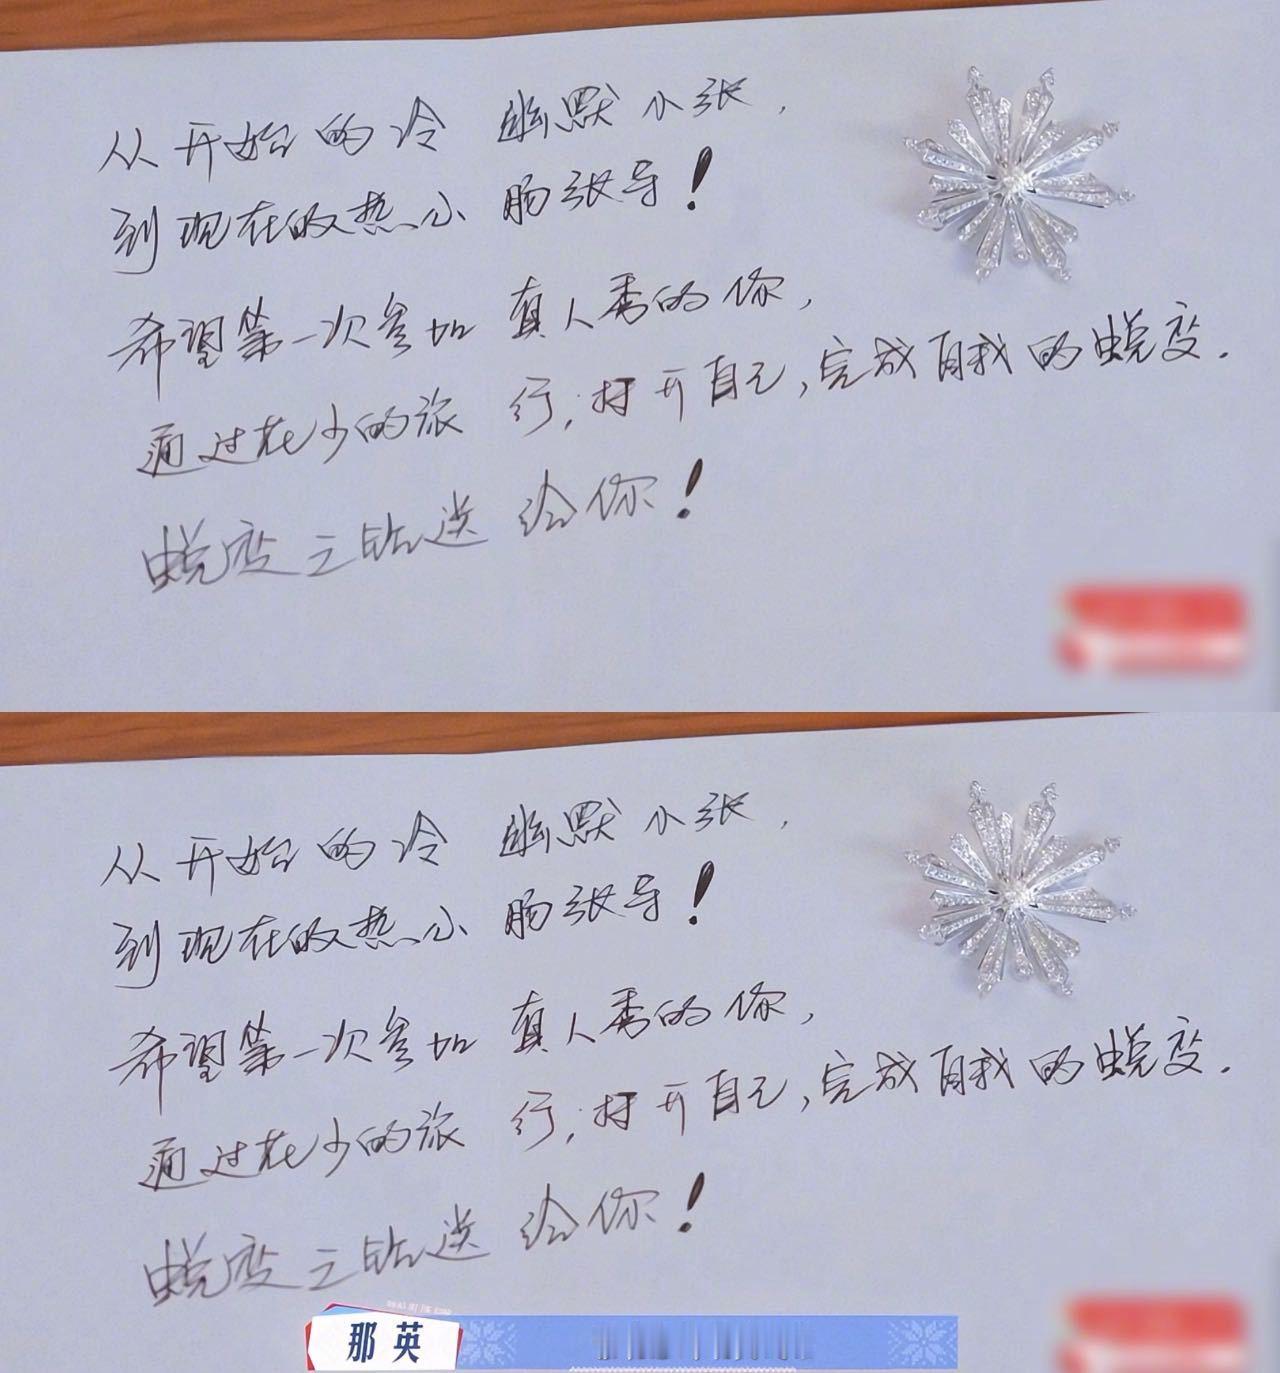 从开始的冷幽默小张，
到现在的热心肠张导！
希望第一次参加真人秀的你，
通过花少的旅行，打开自己，完成自我的蜕变.
蜕变之钻送给你！
从开始的冷幽默小张，
到现在的热心肠张导！
希望第一次参加真人秀的你，
通过花少的旅行，打开自己，完成自我的蜕变.
蜕变之钻送给你！
那英